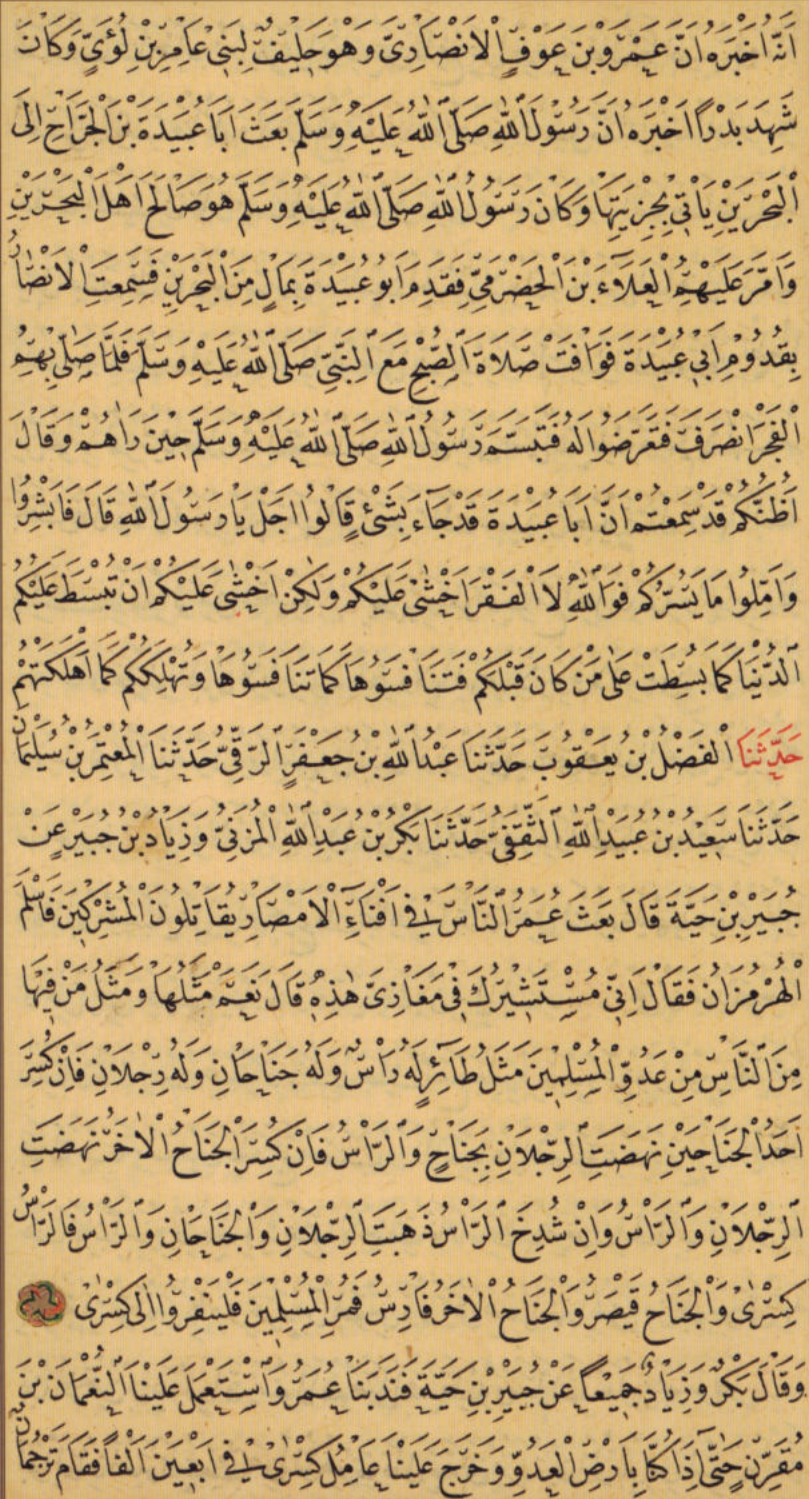 اَنَّهُ اَخْبَرَهُ اَنَّ عَمْرَو بْنَ عَوْفٍ الْاَنْصَارِىَّ وَهْوَ حَلِيفٌ لِبَنِى عَامِرِ بْنِ لُؤَىٍّ وَكَانَ
شَهِدَ بَدْراً اَخْبَرَهُ اَنَّ رَسُولَ اللّٰهِ صَلَّى اللّٰهُ عَلَيْهِ وَسَلَّمَ بَعَثَ اَبَا عُبَيْدَةَ بْنَ الْجَرَّاحِ اِلَى
الْبَحْرَيْنِ يَأْتِى بِجِزْيَتِهَا وَكَانَ رَسُولُ اللّٰهِ صَلَّى اللّٰهُ عَلَيْهِ وَسَلَّمَ هُوَ صَالَحَ اَهْلَ الْبَحْرَيْنِ
وَاَمَّرَ عَلَيْهِمُ الْعَلَاءَ بْنَ الْحَضْرَمِىِّ فَقَدِمَ اَبُو عُبَيْدَةَ بِمَالٍ مِنَ الْبَحْرَيْنِ فَسَمِعَتِ الْاَنْصَارُ
بِقُدُومِ اَبِى عُبَيْدَةَ فَوَافَتْ صَلَاةَ الصُّبْحِ مَعَ النَّبِىِّ صَلَّى اللّٰهُ عَلَيْهِ وَسَلَّمَ فَلَمَّا صَلَّى بِهِمُ
الْفَجْرَ انْصَرَفَ فَتَعَرَّضُوا لَهُ فَتَبَسَّمَ رَسُولُ اللّٰهِ صَلَّى اللّٰهُ عَلَيْهِ وَسَلَّمَ حِينَ رَاٰهُمْ وَقَالَ
اَظُنُّكُمْ قَدْ سَمِعْتُمْ اَنَّ اَبَا عُبَيْدَةَ قَدْ جَاءَ بِشَىْءٍ قَالُوا اَجَلْ يَا رَسُولَ اللّٰهِ قَالَ فَاَبْشِرُوا
وَاَمِّلُوا مَا يَسُرُّكُمْ فَوَاللّٰهِ لَا الْفَقْرَ اَخْشٰى عَلَيْكُمْ وَلٰكِنْ اَخْشٰى عَلَيْكُمْ اَنْ تُبْسَطَ عَلَيْكُمُ
الدُّنْيَا كَمَا بُسِطَتْ عَلٰى مَنْ كَانَ قَبْلَكُمْ فَتَنَافَسُوهَا كَمَا تَنَافَسُوهَا وَتُهْلِكَكُمْ كَمَا اَهْلَكَتْهُمْ
حَدَّثَنَا الْفَضْلُ بْنُ يَعْقُوبَ حَدَّثَنَا عَبْدُ اللّٰهِ بْنُ جَعْفَرٍ الرَّقِّىُّ حَدَّثَنَا الْمُعْتَمِرُ بْنُ سُلَيْمَانَ
حَدَّثَنَا سَعِيدُ بْنُ عُبَيْدِ اللّٰهِ الثَّقَفِىُّ حَدَّثَنَا بَكْرُ بْنُ عَبْدِ اللّٰهِ الْمُزَنِىُّ وَزِيَادُ بْنُ جُبَيْرٍ عَنْ
جُبَيْرِ بْنِ حَيَّةَ قَالَ بَعَثَ عُمَرُ النَّاسَ فِى اَفْنَاءِ الْاَمْصَارِ يُقَاتِلُونَ الْمُشْرِكِينَ فَاَسْلَمَ
الْهُرْمُزَانُ فَقَالَ اِنِّى مُسْتَشِيرُكَ فِى مَغَازِىَّ هٰذِهِ قَالَ نَعَمْ مَثَلُهَا وَمَثَلُ مَنْ فِيهَا
مِنَ النَّاسِ مِنْ عَدُوِّ الْمُسْلِمِينَ مَثَلُ طَائِرٍ لَهُ رَاْسٌ وَلَهُ جَنَاحَانِ وَلَهُ رِجْلَانِ فَاِنْ كُسِرَ
اَحَدُ الْجَنَاحَيْنِ نَهَضَتِ الرِّجْلَانِ بِجَنَاحٍ وَالرَّاْسُ فَاِنْ كُسِرَ الْجَنَاحُ الْاٰخَرُ نَهَضَتِ
الرِّجْلَانِ وَالرَّاْسُ وَاِنْ شُدِخَ الرَّاْسُ ذَهَبَتِ الرِّجْلَانِ وَالْجَنَاحَانِ وَالرَّاْسُ فَالرَّاْسُ
كِسْرٰى وَالْجَنَاحُ قَيْصَرُ وَالْجَنَاحُ الْاٰخَرُ فَارِسُ فَمُرِ الْمُسْلِمِينَ فَلْيَنْفِرُوا اِلٰى كِسْرٰى
وَقَالَ بَكْرٌ وَزِيَادٌ جَمِيعاً عَنْ جُبَيْرِ بْنِ حَيَّةَ فَنَدَبَنَا عُمَرُ وَاسْتَعْمَلَ عَلَيْنَا النُّعْمَانَ بْنَ
مُقَرِّنٍ حَتّٰى اِذَا كُنَّا بِاَرْضِ الْعَدُوِّ وَخَرَجَ عَلَيْنَا عَامِلُ كِسْرٰى فِى اَرْبَعِينَ اَلْفاً فَقَامَ تَرْجُمَانٌ